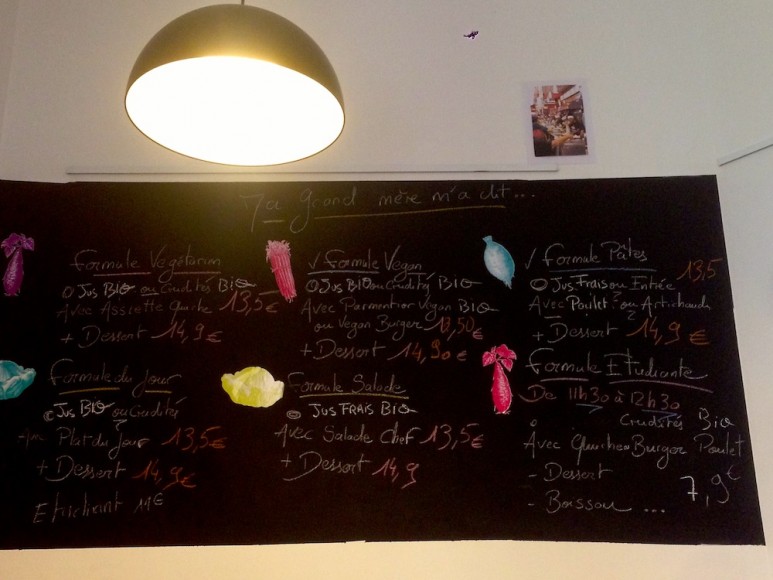 Ma grand mère m'a dit...
Formule Végétarien
Jus BIO ou Crudités BIO
Avec Assiette Quiche 13,5€
+ Dessert 14,9€
✓ Formule Vegan
Jus BIO ou Crudités BIO
Avec Parmentier Vegan BIO
ou Vegan Burger 13,50€
+ Dessert 14,90€
✓ Formule Pâtes
13,5
Jus Frais ou Entrée
Avec Poulet ou Artichauds
+ Dessert 14,9€
Formule du Jour
Jus BIO ou Crudités
Plat du Jour 13,5€
+ Dessert 14,9€
Etudiant 11€
Formule Salade
Jus FRAIS BIO
Avec Salade Chef 13,5€
+ Dessert 14,9
Formule Etudiante
De 11h30 à 12h30
Crudités Bio
Avec Quiche Burger Poulet
- Dessert
- Boisson ...
7,9€